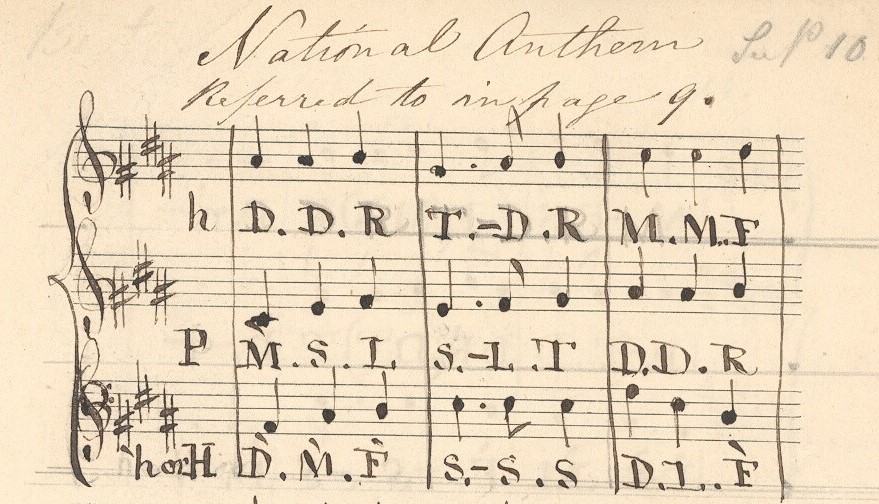 National Anthem
Sup 10
Referred to in page 9.
h D. D. R T.-D.R M.M.F
P M̀.S.L S.-L.T D.D.R
h̀ or H D̀.M̀.F̀ S.-S.S D.L.F̀